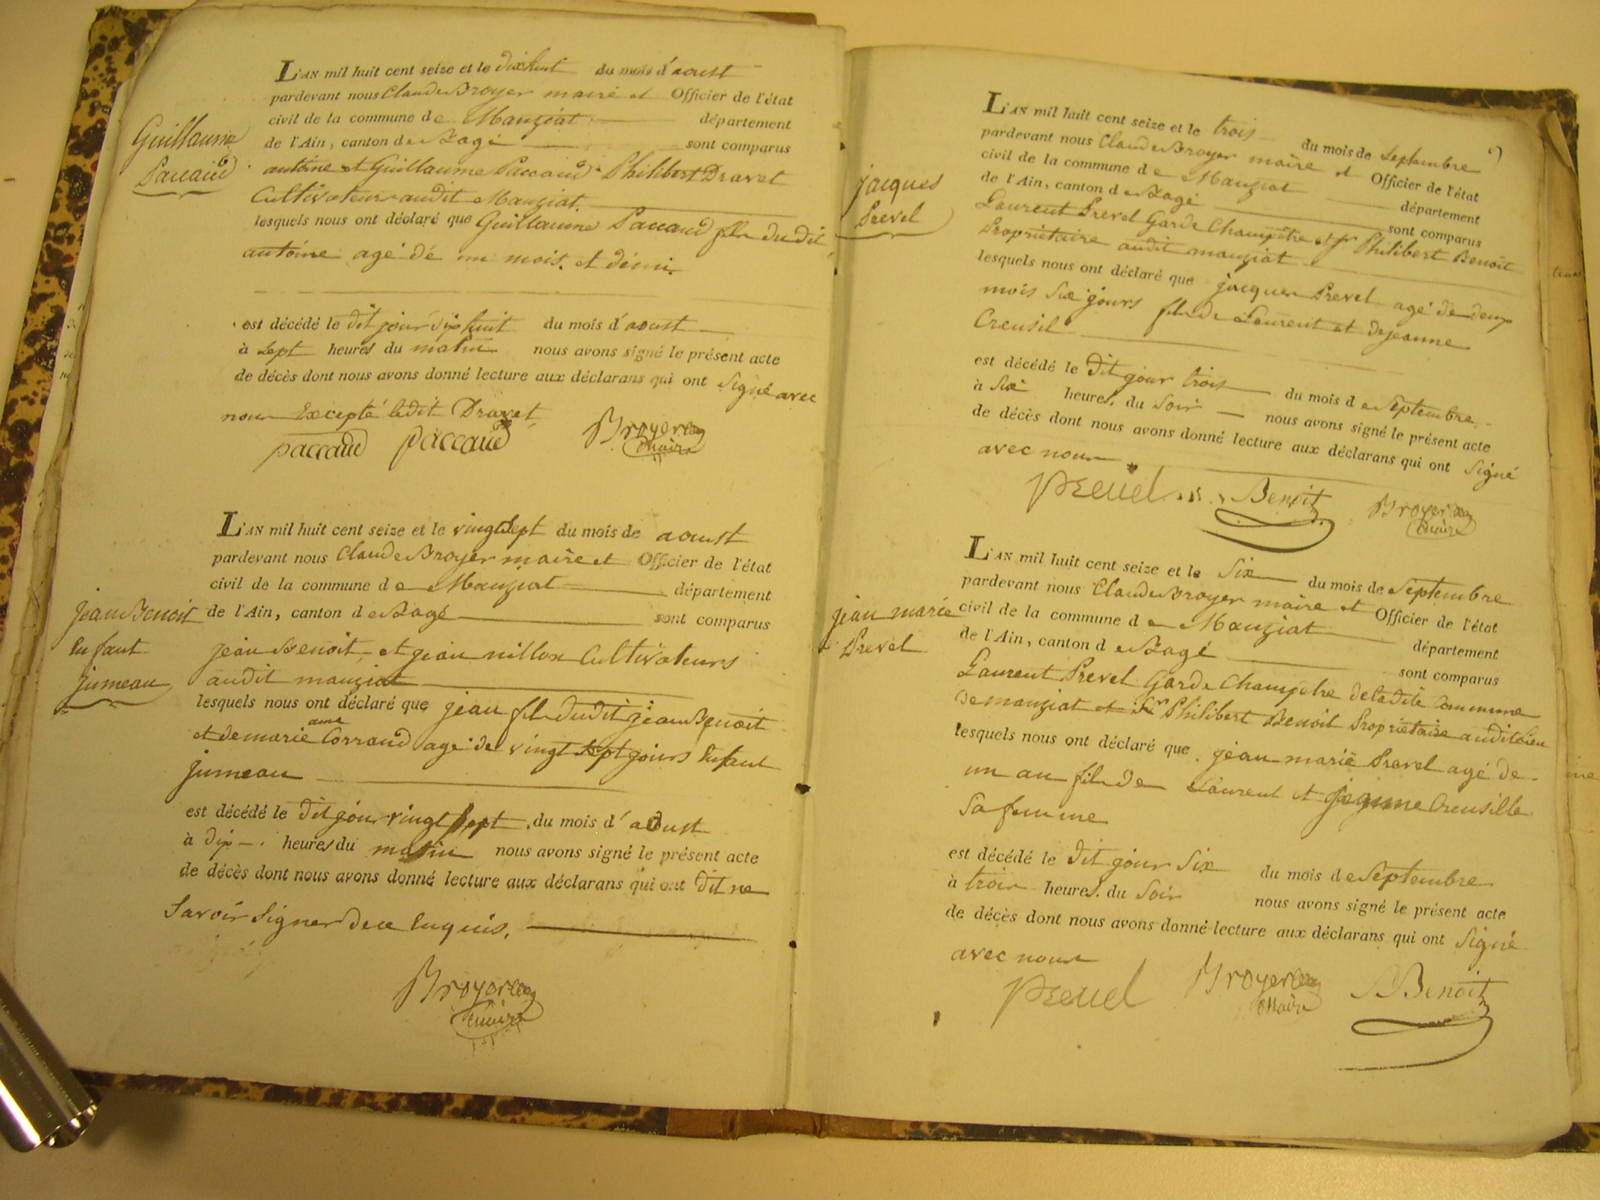 Guillaume
Paccaud
L'AN mil huit cent seize et le dixhuit du mois d'aoust
pardevant nous Claude Broyer maire et Officier de l'état
civil de la commune de Manziat département
de l'Ain, canton de Bagé sont comparus
antoine et Guillaume Paccaud Philibert Dravet
Cultivateurs audit Manziat
lesquels nous ont déclaré que Guillaume Paccaud fils du dit
antoine agé de un mois et demi
est décédé le dit jour dixhuit du mois d'aoust
à sept heures du matin nous avons signé le présent acte
de décès dont nous avons donné lecture aux déclarans qui ont signé avec
nous Excepté ledit Dravet
paccaud paccaud Broyer
maire
jean Benoit
Enfant
jumeau
L'AN mil huit cent seize et le vingt sept du mois de aoust
pardevant nous Claude Broyer maire et Officier de l'état
civil de la commune de Manziat département
de l'Ain, canton de Bagé sont comparus
jean Benoit et jean nillon Cultivateurs
audit manziat
lesquels nous ont déclaré que jean fils dudit jean Benoit
et de marie anne Corrand agé de vingt sept jours Enfant
jumeau
est décédé le dit jour vingt sept du mois d'aoust
à dix heures du matin nous avons signé le présent acte
de décès dont nous avons donné lecture aux déclarans qui ont dit ne
Savoir signer de ce Enquis.
Broyer
maire
jacques
Prevel
L'AN mil huit cent seize et le trois du mois de Septembre
pardevant nous Claude Broyer maire et Officier de l'état
civil de la commune de Manziat département
de l'Ain, canton de Bagé sont comparus
Laurent Prevel Garde Champêtre et Sr Philibert Benoit
Propriétaire audit manziat
lesquels nous ont déclaré que jacques Prevel agé de deux
mois six jours fils de Laurent et de jeanne
Creusil
est décédé le dit jour trois du mois de Septembre
à six heures du soir nous avons signé le présent acte
de décès dont nous avons donné lecture aux déclarans qui ont signé
avec nous
Prevel Benoit Broyer
maire
jean marie
Prevel
L'AN mil huit cent seize et le Six du mois de Septembre
pardevant nous Claude Broyer maire et Officier de l'état
civil de la commune de Manziat département
de l'Ain, canton de Bagé sont comparus
Laurent Prevel Garde Champêtre de ladite Commune
de manziat et Sr Philibert Benoit Propriétaire audit Lieu
lesquels nous ont déclaré que jean marie Prevel agé de
un an fils de Laurent et jeanne Creusille
Sa femme
est décédé le dit jour six du mois de Septembre
à trois heures du soir nous avons signé le présent acte
de décès dont nous avons donné lecture aux déclarans qui ont signé
avec nous
Prevel Broyer Benoit
maire